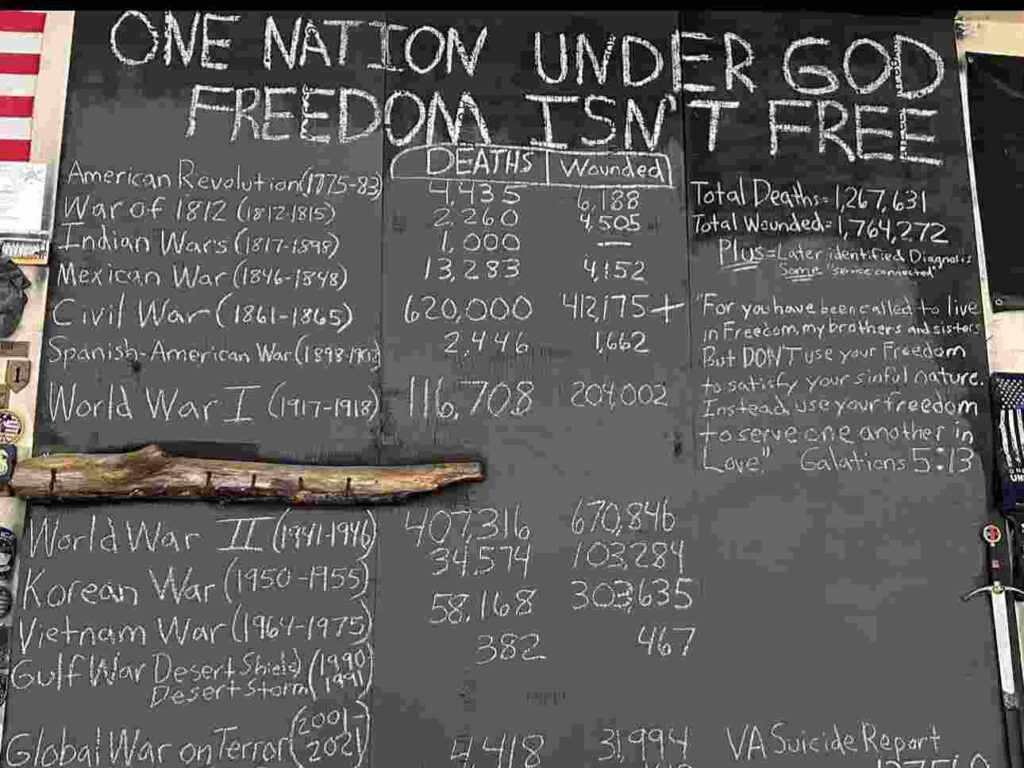 ONE NATION UNDER GOD
FREEDOM ISN'T FREE
DEATHS Wounded
American Revolution (1775-83) 4,435 6,188
War of 1812 (1812-1815) 2,260 4,505
Indian Wars (1817-1898) 1,000 —
Mexican War (1846-1848) 13,283 4,152
Civil War (1861-1865) 620,000 412,175+
Spanish-American War (1898-) 2,446 1,662
World War I (1917-1918) 116,708 204,002
World War II (1941-1946) 407,316 670,846
Korean War (1950-1955) 34,574 103,284
Vietnam War (1964-1975) 58,168 303,635
Gulf War Desert Shield (1990 382 467
Desert Storm 1991)
Global War on Terror (2001-2021) 4,418 31,994
Total Deaths=1,267,631
Total Wounded=1,764,272
Plus=Later identified Diagnosis
Some "service connected"
"For you have been called to live
in Freedom, my brothers and sisters
But DON'T use your Freedom
to satisfy your sinful nature.
Instead use your freedom
to serve one another in
Love" Galations 5:13
VA Suicide Report